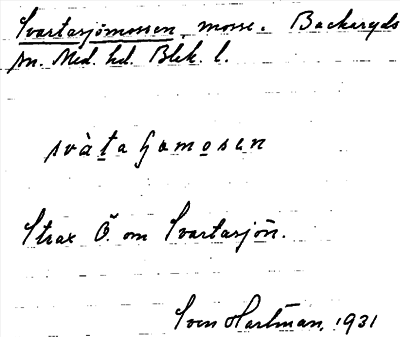 Svartasjömossen, mosse. Backaryds
sn. Med. hd. Blek. l.
svàta ʃomosen
Strax Ö. om Svartasjön.
Sven Hartman, 1931